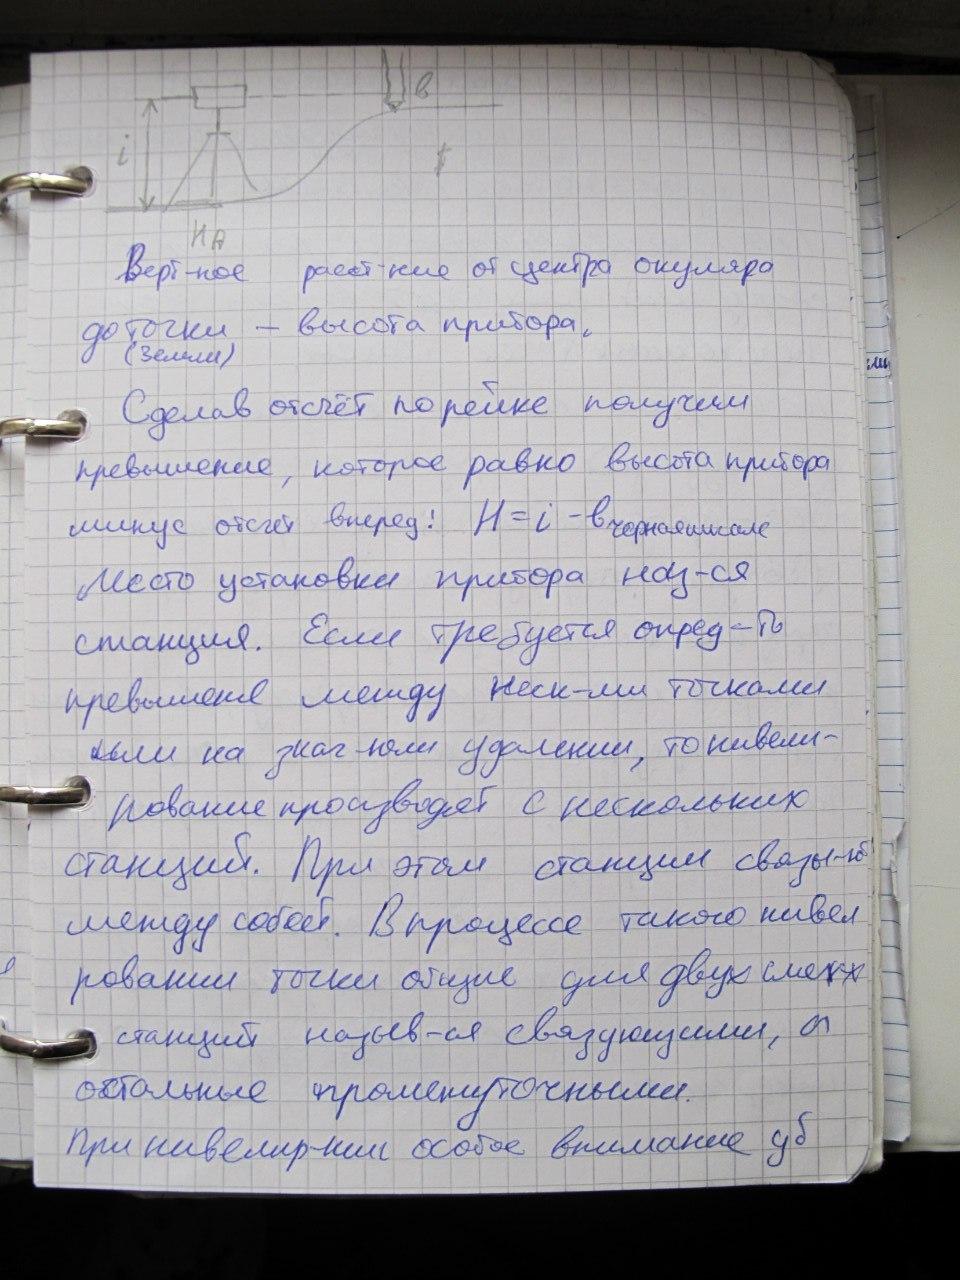 в
i
НА
Верт-ное расст-ние от центра окуляра
до точки — высота прибора.
(Земли)
Сделав отсчёт по рейке получим
превышение, которое равно высота прибора
минус отсчёт вперед: H = i - в черная шкале
Место установки прибора наз-ся
станция. Если требуется опред-ть
превышение между неск-ми точками
или на знач-ном удалении, то нивели-
рование производят с нескольких
станций. При этом станции связы-ют
между собой. В процессе такого нивел
ровании точки общие для двух смежх
станций назыв-ся связующими, а
остальные промежуточными.
При нивелир-нии особое внимание уд